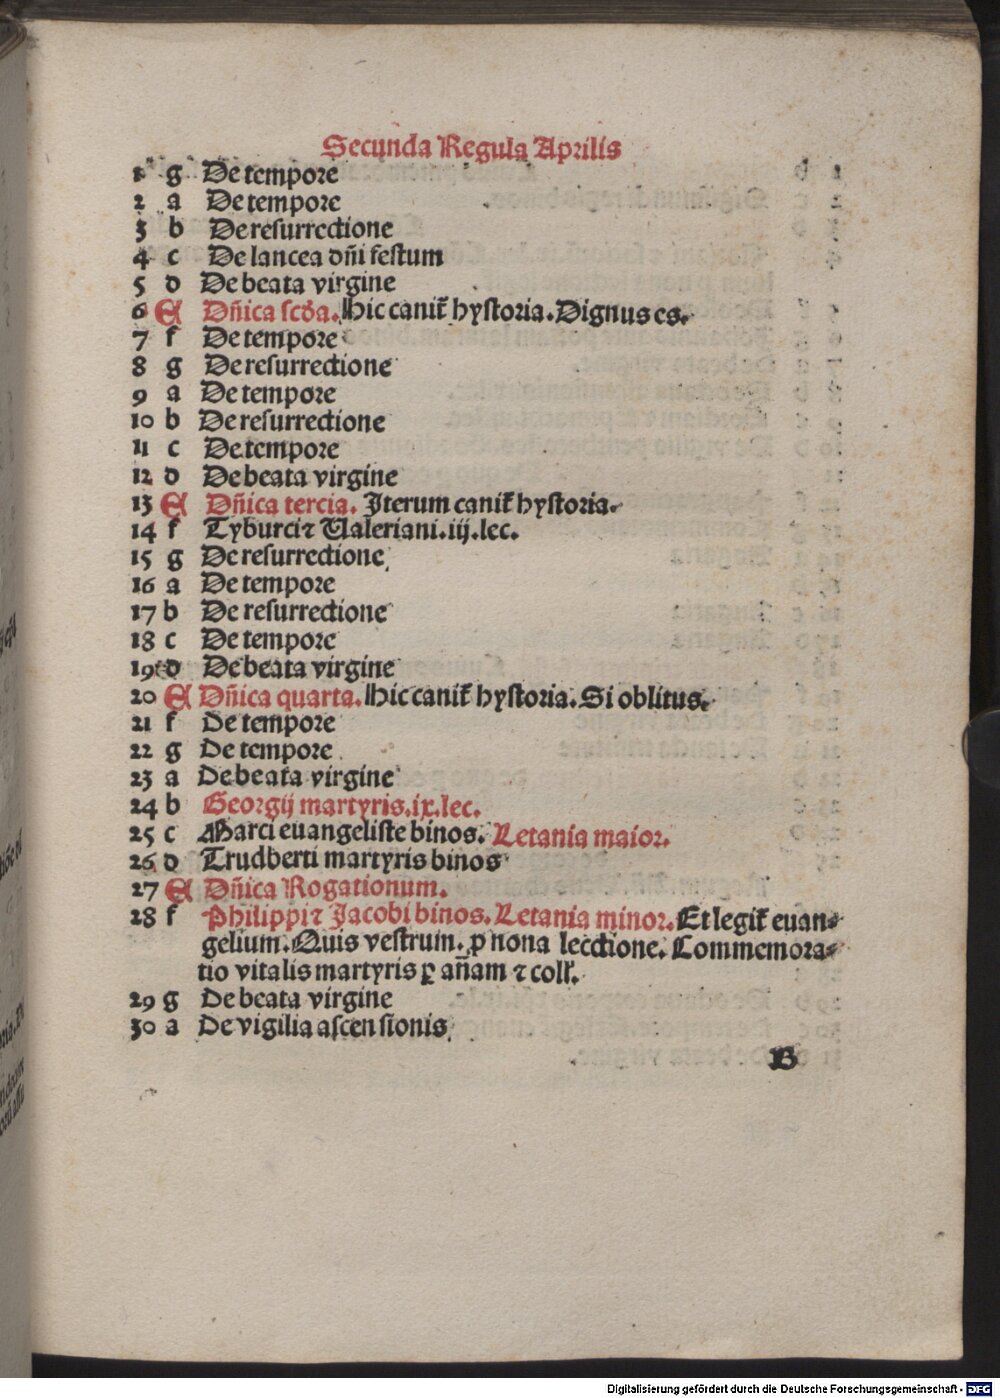 Secunda Regula Aprilis
1 g De tempore
2 a De tempore
3 b De resurrectione
4 c De lancea dñi festum
5 d De beata virgine
6 A Dñica scđa. Hic canit̃ hystoria. Dignus es.
7 f De tempore
8 g De resurrectione
9 a De tempore
10 b De resurrectione
11 c De tempore
12 d De beata virgine
13 A Dñica tercia. Iterum canit̃ hystoria.
14 f Tyburci ⁊ Valeriani. iij. lec.
15 g De resurrectione
16 a De tempore
17 b De resurrectione
18 c De tempore
19 d De beata virgine
20 A Dñica quarta. Hic canit̃ hystoria. Si oblitus.
21 f De tempore
22 g De tempore
23 a De beata virgine
24 b Georgij martyris. ix. lec.
25 c Marci euangeliste binos. Letania maior.
26 d Trudberti martyris binos
27 A Dñica Rogationum.
28 f Philippi ⁊ Jacobi binos. Letania minor. Et legit̃ euan-
gelium. Quis vestrum. ꝓ nona lecctione. Commemora-
tio vitalis martyris ꝑ añam ⁊ coll'.
29 g De beata virgine
30 a De vigilia ascensionis
B
Digitalisierung gefördert durch die Deutsche Forschungsgemeinschaft - DFG